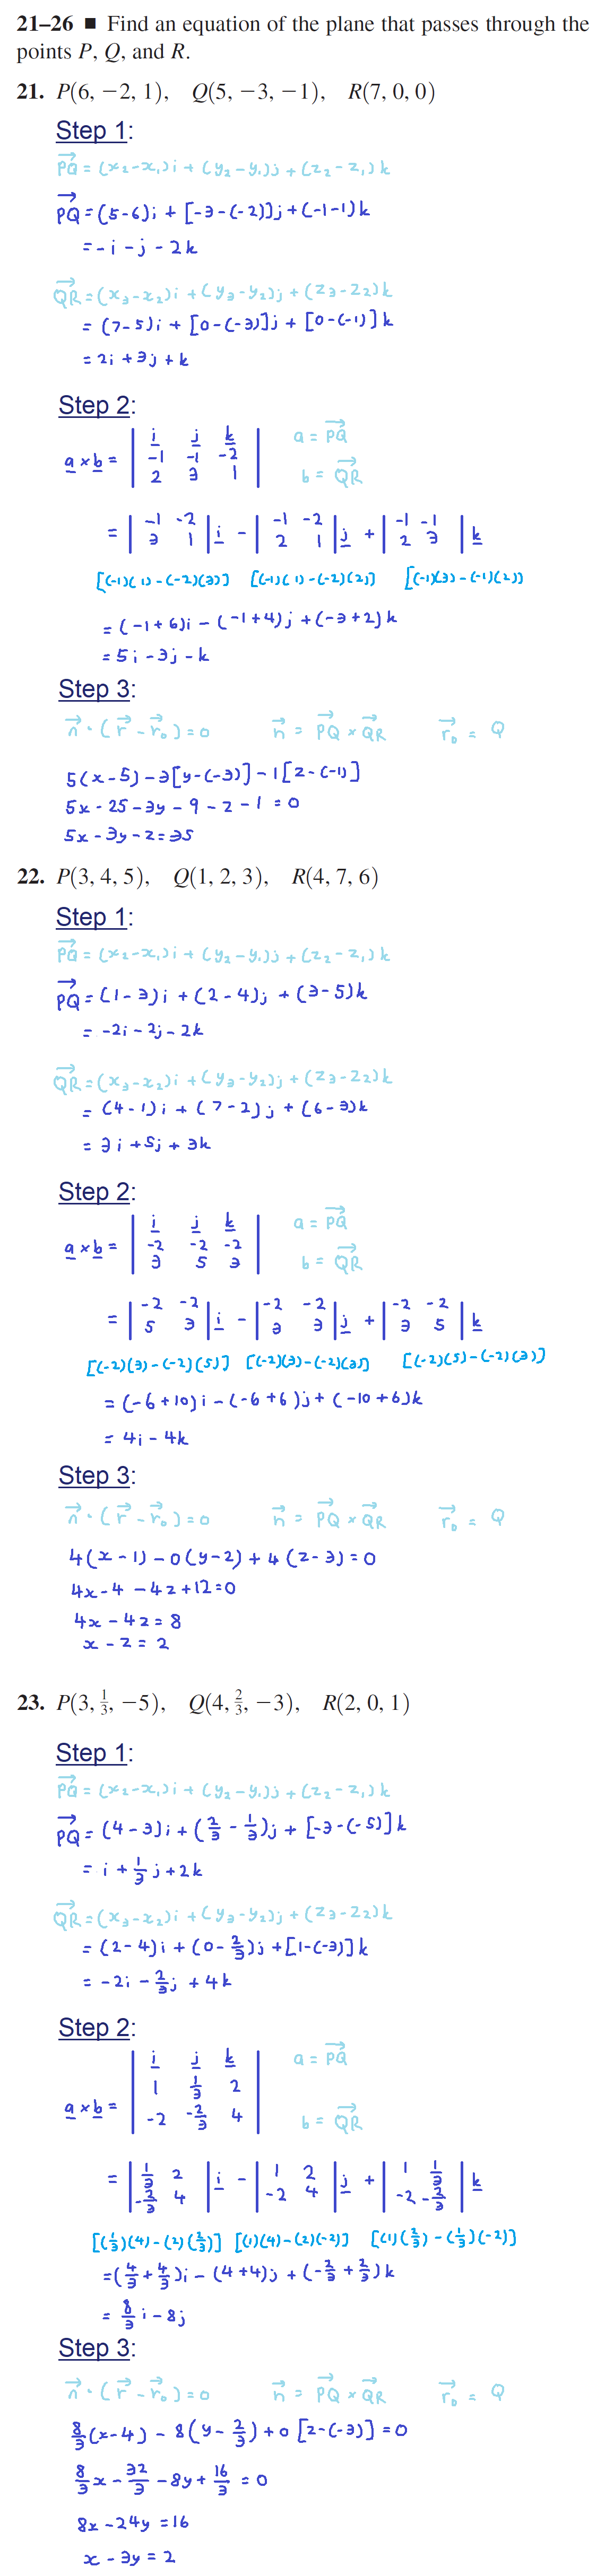 21–26 ■ Find an equation of the plane that passes through the
points P, Q, and R.
21. P(6, −2, 1), Q(5, −3, −1), R(7, 0, 0)
Step 1:
PQ→ = (x₂-x₁)i + (y₂-y₁)j + (z₂-z₁)k
PQ→ = (5-6)i + [-3-(-2)]j + (-1-1)k
= -i - j - 2k
QR→ = (x₃-x₂)i + (y₃-y₂)j + (z₃-z₂)k
= (7-5)i + [0-(-3)]j + [0-(-1)]k
= 2i + 3j + k
Step 2:
a × b = | i j k | a = PQ→
| -1 -1 -2 |
| 2 3 1 | b = QR→
= | -1 -2 | i - | -1 -2 | j + | -1 -1 | k
| 3 1 | | 2 1 | | 2 3 |
[(-1)(1)-(-2)(3)] [(-1)(1)-(-2)(2)] [(-1)(3)-(-1)(2)]
= (-1+6)i - (-1+4)j + (-3+2)k
= 5i - 3j - k
Step 3:
n→ · (r→ - r→₀) = 0 n→ = PQ→ × QR→ r→₀ = Q
5(x-5) - 3[y-(-3)] - 1[z-(-1)]
5x - 25 - 3y - 9 - z - 1 = 0
5x - 3y - z = 35
22. P(3, 4, 5), Q(1, 2, 3), R(4, 7, 6)
Step 1:
PQ→ = (x₂-x₁)i + (y₂-y₁)j + (z₂-z₁)k
PQ→ = (1-3)i + (2-4)j + (3-5)k
= -2i - 2j - 2k
QR→ = (x₃-x₂)i + (y₃-y₂)j + (z₃-z₂)k
= (4-1)i + (7-2)j + (6-3)k
= 3i + 5j + 3k
Step 2:
a × b = | i j k | a = PQ→
| -2 -2 -2 |
| 3 5 3 | b = QR→
= | -2 -2 | i - | -2 -2 | j + | -2 -2 | k
| 5 3 | | 3 3 | | 3 5 |
[(-2)(3)-(-2)(5)] [(-2)(3)-(-2)(3)] [(-2)(5)-(-2)(3)]
= (-6+10)i - (-6+6)j + (-10+6)k
= 4i - 4k
Step 3:
n→ · (r→ - r→₀) = 0 n→ = PQ→ × QR→ r→₀ = Q
4(x-1) - 0(y-2) + 4(z-3) = 0
4x - 4 - 4z + 12 = 0
4x - 4z = 8
x - z = 2
23. P(3, 1/3, −5), Q(4, 2/3, −3), R(2, 0, 1)
Step 1:
PQ→ = (x₂-x₁)i + (y₂-y₁)j + (z₂-z₁)k
PQ→ = (4-3)i + (2/3 - 1/3)j + [-3-(-5)]k
= i + 1/3 j + 2k
QR→ = (x₃-x₂)i + (y₃-y₂)j + (z₃-z₂)k
= (2-4)i + (0-2/3)j + [1-(-3)]k
= -2i - 2/3 j + 4k
Step 2:
a × b = | i j k | a = PQ→
| 1 1/3 2 |
| -2 -2/3 4 | b = QR→
= | 1/3 2 | i - | 1 2 | j + | 1 1/3 | k
| -2/3 4 | | -2 4 | | -2 -2/3 |
[(1/3)(4)-(2)(2/3)] [(1)(4)-(2)(-2)] [(1)(2/3)-(1/3)(-2)]
= (4/3 + 4/3)i - (4+4)j + (-2/3 + 2/3)k
= 8/3 i - 8j
Step 3:
n→ · (r→ - r→₀) = 0 n→ = PQ→ × QR→ r→₀ = Q
8/3 (x-4) - 8(y - 2/3) + 0[z-(-3)] = 0
8/3 x - 32/3 - 8y + 16/3 = 0
8x - 24y = 16
x - 3y = 2